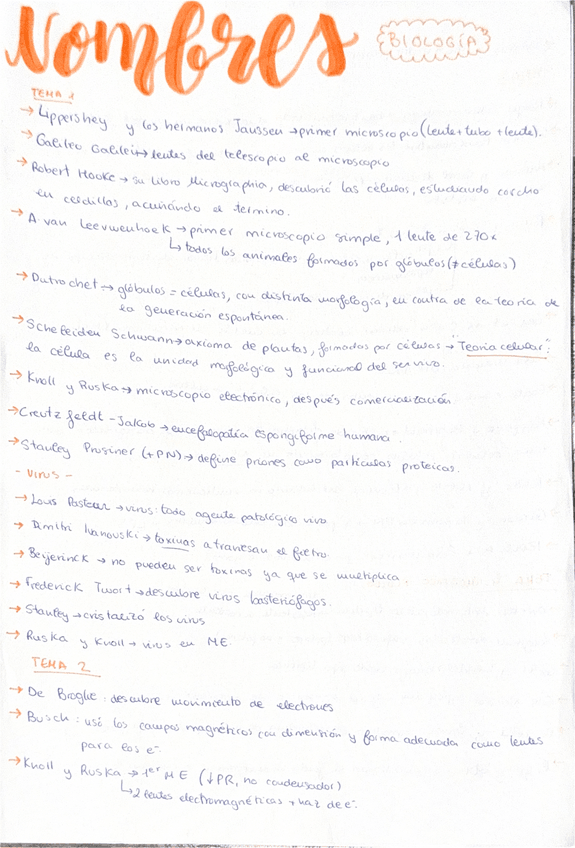 Nombres
BIOLOGÍA
TEMA 1
→ Lippershey y los hermanos Janssen → primer microscopio (lente + tubo + lente).
→ Galileo Galilei → lentes del telescopio al microscopio
→ Robert Hooke → su libro Micrographia, descubrió las células, estudiando corcho
en celdillas, acuñando el término.
→ A. van Leevwenhoek → primer microscopio simple, 1 lente de 270x
↳ todos los animales formados por glóbulos (≠ células)
→ Dutrochet → glóbulos = células, con distinta morfología, en contra de la teoría de
la generación espontánea.
→ Scheleiden Schwann → axioma de plantas, formados por células → "Teoría celular":
la célula es la unidad morfológica y funcional del ser vivo.
→ Knoll y Ruska → microscopio electrónico, después comercialización
→ Creutz feldt - Jakob → encefalopatía espongiforme humana.
→ Stanley Prusiner (+PN) → define priones como partículas proteicas.
- VIRUS -
→ Louis Pasteur → virus: todo agente patológico vivo
→ Dimitri Ivanovski → toxinas atraviesan el filtro.
→ Beijerinck → no pueden ser toxinas ya que se multiplica
→ Frederick Twort → descubre virus bacteriófagos.
→ Stanley → cristalizó los virus
→ Ruska y Knoll → virus en ME.
TEMA 2
→ De Broglie: descubre movimiento de electrones
→ Busch: usó los campos magnéticos con dimensión y forma adecuada como lentes
para los e⁻.
→ Knoll y Ruska → 1er ME (↓PR, no condensador)
↳ 2 lentes electromagnéticas + haz de e⁻.